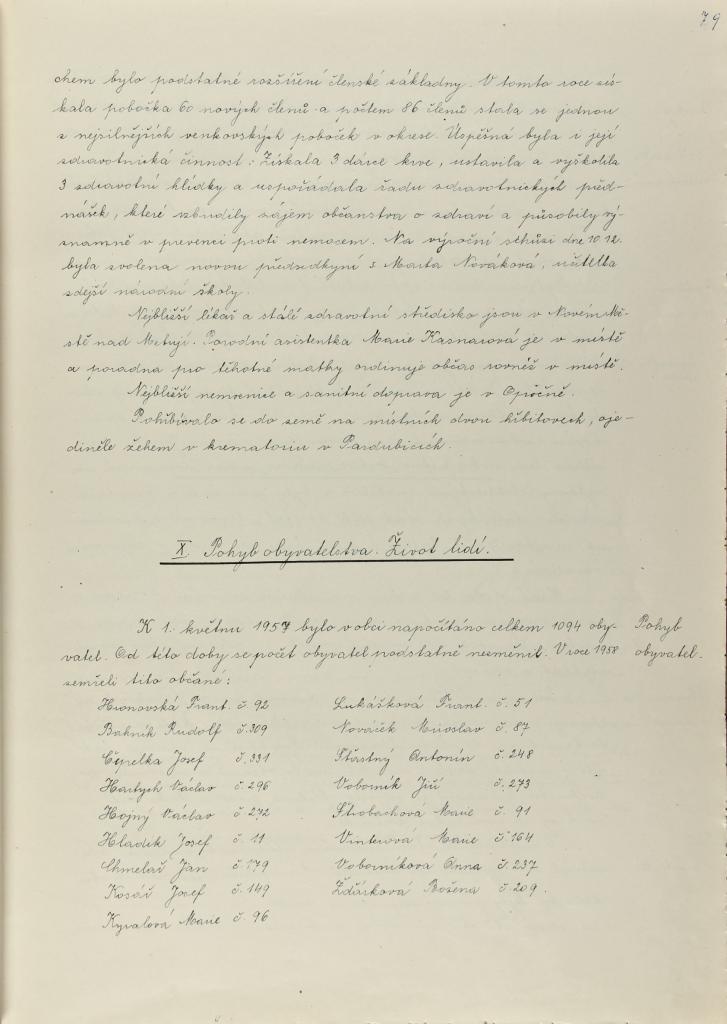 79
chem bylo podstatné rozšíření členské základny. V tomto roce zís-
kala pobočka 60 nových členů a počtem 86 členů stala se jednou
z nejsilnějších venkovských poboček v okrese. Úspěšná byla i její
zdravotnická činnost: Získala 3 dárce krve, ustavila a vyškolila
3 zdravotní hlídky a uspořádala řadu zdravotnických před-
nášek, které vzbudily zájem občanstva o zdraví a působily vý-
znamně v prevenci proti nemocem. Na výroční schůzi dne 10.12.
byla zvolena novou předsedkyní s. Marta Nováková, učitelka
zdejší národní školy.
Nejbližší lékař a stálé zdravotní středisko jsou v Novém Mě-
stě nad Metují. Porodní asistentka Marie Kasnarová je v místě
a poradna pro těhotné matky ordinuje občas rovněž v místě.
Nejbližší nemocnice a sanitní doprava je v Opočně.
Pohřbívalo se do země na místních dvou hřbitovech, oje-
diněle žehem v krematoriu v Pardubicích.
X. Pohyb obyvatelstva. Život lidí.
K 1. květnu 1957 bylo v obci napočítáno celkem 1094 oby-
vatel. Od této doby se počet obyvatel podstatně nezměnil. V roce 1958
zemřeli tito občané:
Pohyb
obyvatel.
Hronovská Frant. č. 92
Bahník Rudolf č. 309
Čepelka Josef č. 331
Hartych Václav č. 296
Hojný Václav č. 272
Hladík Josef č. 11
Chmelař Jan č. 179
Kosař Josef č. 149
Kyralová Marie č. 96
Lukášková Frant. č. 51
Nováček Miroslav č. 87
Šťastný Antonín č. 248
Voborník Jiří č. 273
Strobachová Marie č. 91
Vinterová Marie č. 164
Voborníková Anna č. 237
Žďárková Božena č. 209.